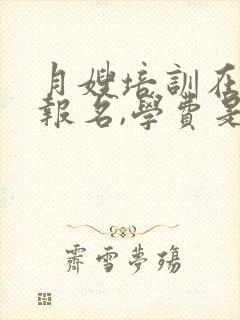 月嫂培訓在
報名,學費是
霽雪夢殤